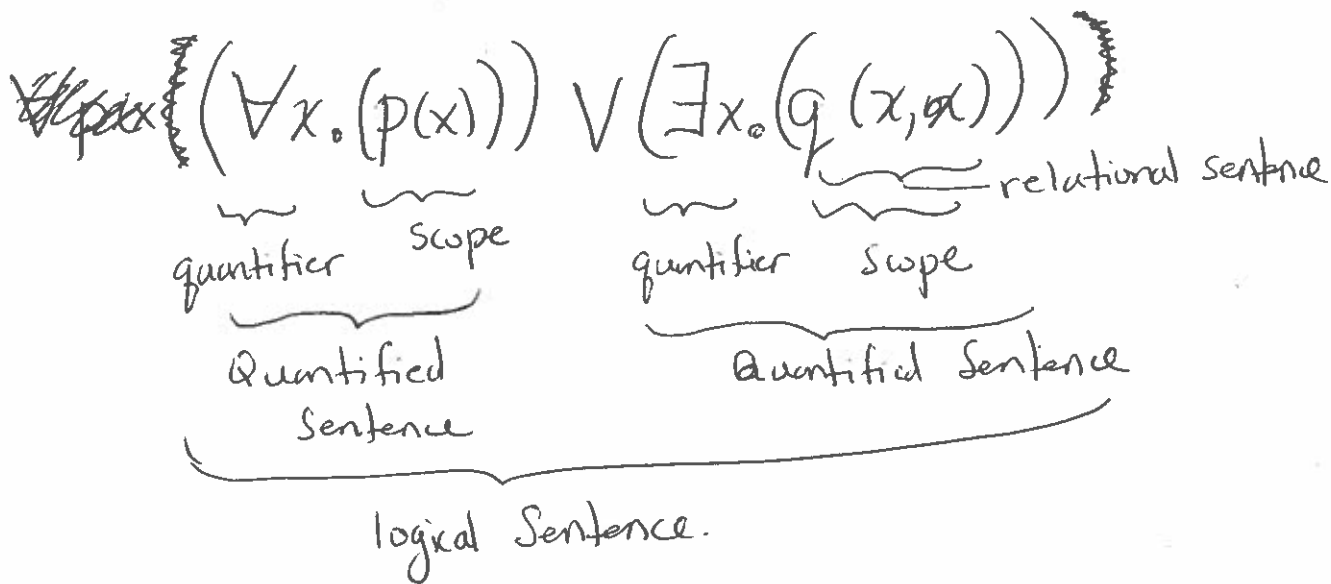 ((∀x.(p(x))) ∨ (∃x.(q(x,x))))
relational sentence
quantifier scope quantifier scope
Quantified Quantifid Sentence
Sentence
logical Sentence.